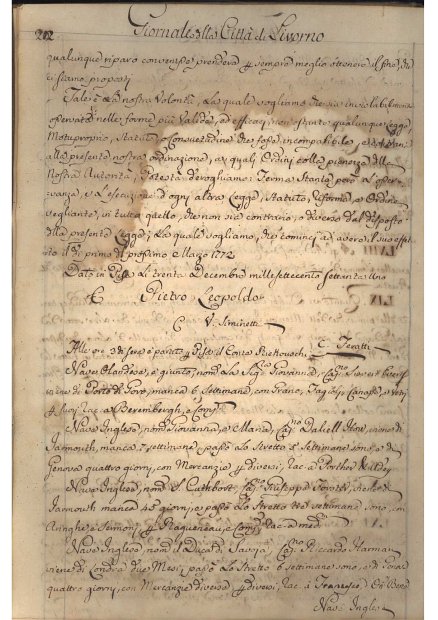 202 Giornale della Città di Livorno
qualunque riparo convenisse prendersi per sempre meglio ottenere il fine, che
ci siamo proposti
Tale è la nostra Volontà, la quale vogliamo che sia inviolabilmente
osservata nelle forme più valide, ed efficaci, non ostante qualunque Legge,
Motuproprio, Statuto, o Consuetudine che fosse incompatibile, e contraria
alla presente nostra ordinazione, ai quali Ordini colla pienezza della
Nostra Autorità, e Potestà deroghiamo: Ferma stante però l'osser-
vanza, e l'esecuzione d'ogni altra Legge, Statuto, Riforma, e Ordine
vegliante, in tutto quello, che non sia contrario, o diverso dal disposto
della presente Legge; La quale vogliamo, che cominci ad avere il suo effet-
to il dì primo del prossimo Marzo 1772.
Dato in Pisa li trenta Decembre mille settecento settanta uno
Pietro Leopoldo
V. Siminetti
Alle ore 3 di sera è partito per Pisa il Conte
Nave Olandese, è giunto, nom. la Sig.ra Giovanna, Cap.no
viene di Porto di manca 6 settimane, con Grano,
per suoi Rac. a Berembergh, e Comp.
Nave Inglese, nom. Giovanna, e Maria, Cap.no viene di
Jarmouth, manca 7 settimane, passò lo Stretto 5 settimane sono, e di
Genova quattro giorni, con Mercanzie per diversi, Rac. a Porther
Nave Inglese, nom. S. Cuthbert, Cap.no Giuseppe viene di
Jarmouth manca 45 giorni, e passò lo Stretto tre settimane sono, con
Aringhe, e Sermoni per Ragueneau, e Comp. Rac. a med.mi
Nave Inglese, nom. il Duca di Savoja, Cap.no Riccardo Harman
viene di Londra due Mesi, passò lo Stretto 6 settimane sono, e di Genova
quattro giorni, con Mercanzie diverse per diversi, Rac. a Francesco
Nave Inglese